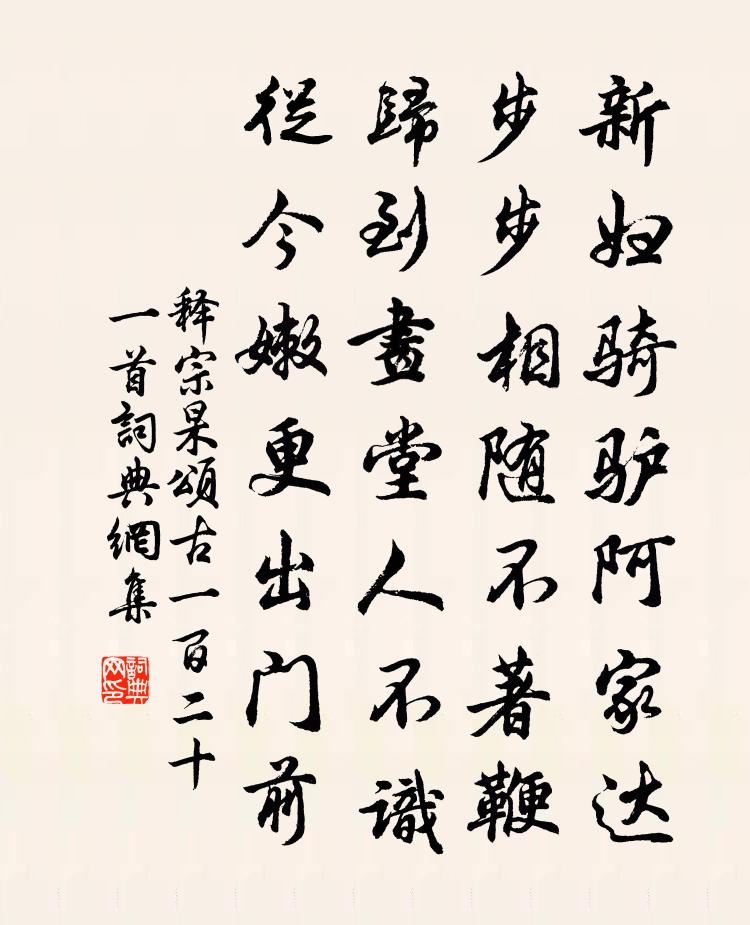 新妇骑驴阿家达
步步相随不著鞭
歸到畫堂人不識
從今嫩更出门前
释宗杲頌古一百二十
一首詞典網集
詞典网印